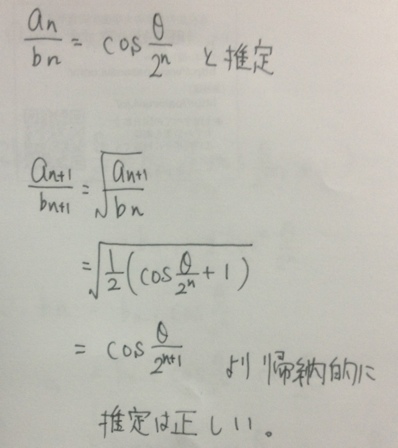 a_n/b_n = cos θ/2^n と推定
a_{n+1}/b_{n+1} = √(a_{n+1}/b_n)
= √(1/2(cos θ/2^n + 1))
= cos θ/2^{n+1} より帰納的に
推定は正しい。